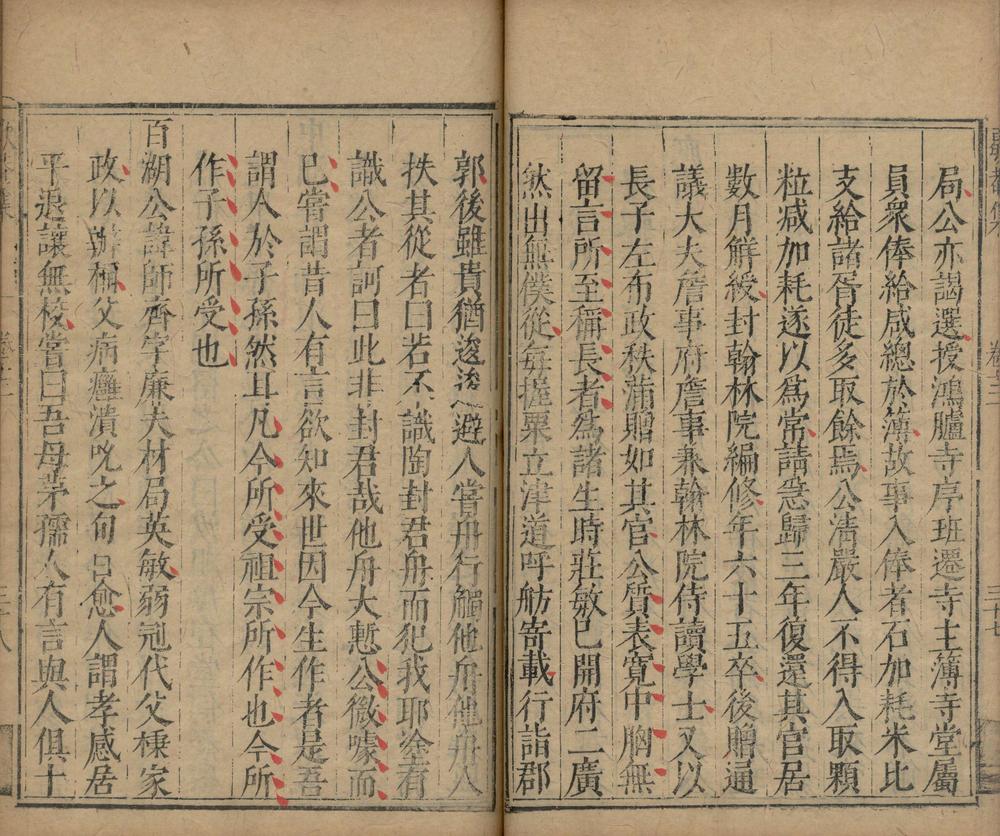 局公亦謁選授鴻臚寺序班遷寺主薄寺堂屬
員衆俸給咸總於薄故事入俸者石加耗米比
支給諸胥徒多取餘焉公清嚴人不得入取顆
粒減加耗遂以爲常請急歸三年復還其官居
數月解綬封翰林院編修年六十五卒後贈通
議大夫詹事府詹事兼翰林院侍讀學士又以
長子左布政秩滿贈如其官公質表寬中胸無
留言所至稱長者爲諸生時莊敏已開府二廣
煞出無僕從每搓粟立津道呼舫寄載行詣郡
郭後雖貴猶逡逡避人嘗舟行觸他舟他舟人
抶其從者曰若不識陶封君舟而犯我耶塗有
識公者訶曰此非封君哉他舟大慙公微噱而
已嘗謂昔人有言欲知來世因今生作者是吾
謂人於子孫然耳凡今所受祖宗所作也今所
作子孫所受也
百湖公諱師齊字廉夫材局英敏弱冠代父棅家
政以辦稱父病癰潰吮之旬日愈人謂孝感居
平退讓無校嘗曰吾母茅孺人有言與人俱十